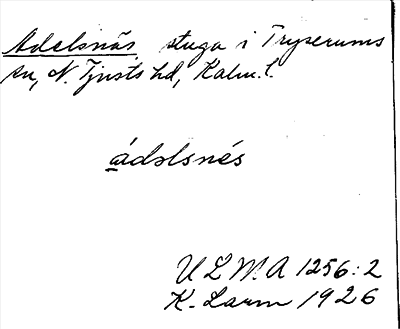 Adelsnäs stuga i Tryserums
sn, N. Tjusts hd, Kalm. l.
ádəlsnés
ULMA 1256:2
K. Larm 1926